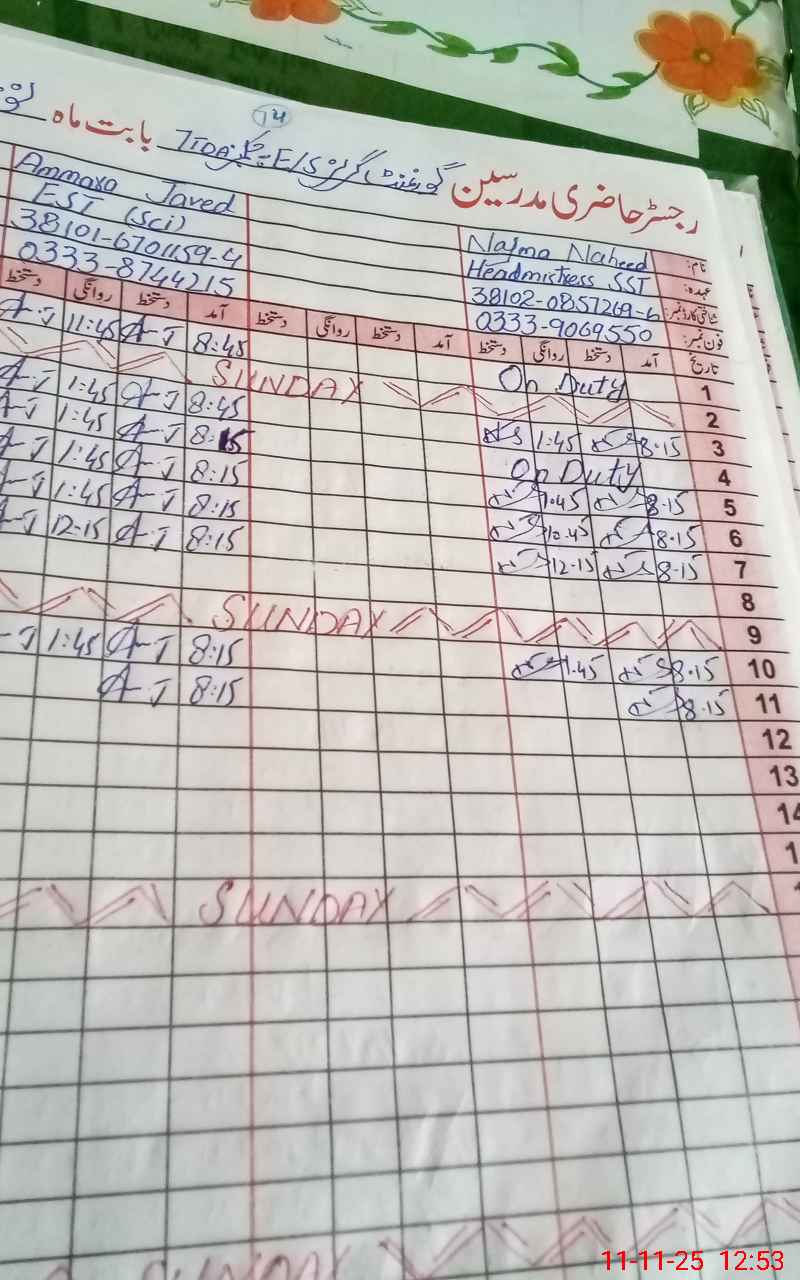 14
رجسٹر حاضری مدرسین گورنمنٹ گرلز E/S 7TDA بابت ماہ
نام: Najma Naheed
Ammara Javed
عہدہ: Headmistress SST
EST (Sci)
شناختی کارڈ نمبر: 38102-0857269-6
38101-6701159-4
فون نمبر: 0333-9069550
0333-8744215
تاریخ آمد دستخط روانگی دستخط آمد دستخط روانگی دستخط آمد دستخط روانگی دستخط
1 On Duty 8:45 A-J 11:45 A-J
2 SUNDAY
3 8.15 1.45 8:45 A-J 1:45 A-J
4 On Duty 8:15 A-J 1:45 A-J
5 8.15 1.45 8:15 A-J 1:45 A-J
6 8.15 10.45 8:15 A-J 1:45 A-J
7 8.15 12.15 8:15 A-J 12.15 A-J
8
9 SUNDAY
10 8.15 1.45 8:15 A-J 1:45 A-J
11 8.15 8:15 A-J
12
13
14
1
SUNDAY
SUNDAY
11-11-25 12:53